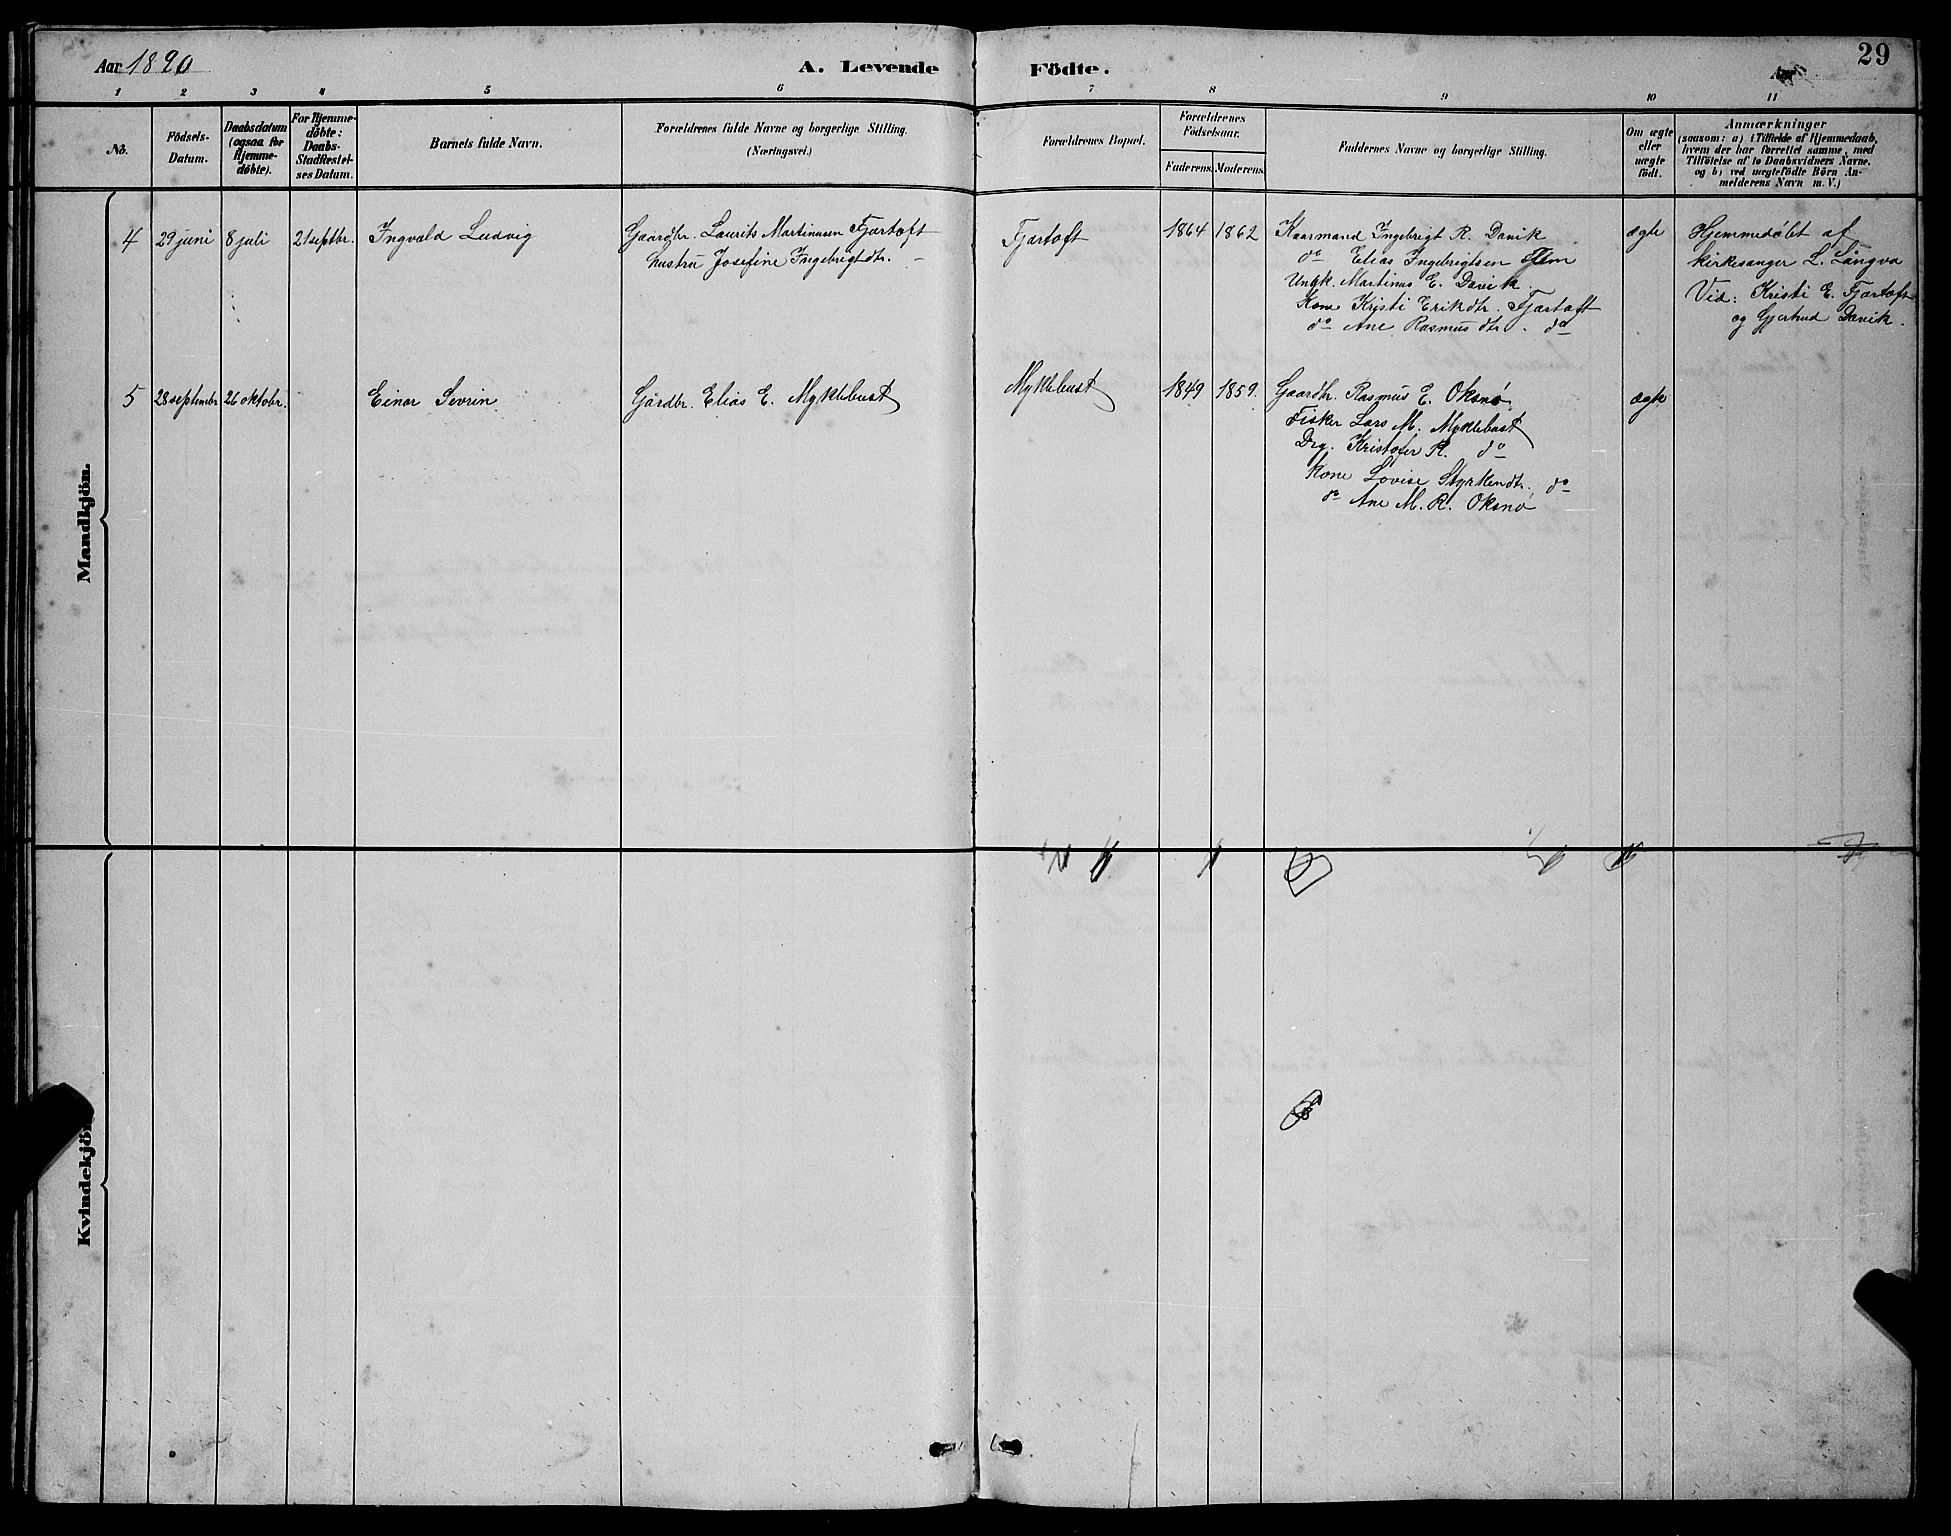 Aar 1890
A. Levende Födte.
Aar
29
1 2 3 4 5 6 7 8 9 10 11
No.
Födsels-
Datum.
Daabsdatum
(ogsaa for
Hjemme-
döbte).
For Hjemme-
döbte:
Daabs-
Stadfæstel-
ses Datum.
Barnets fulde Navn.
Forældrenes fulde Navne og borgerlige Stilling.
(Næringsvei.)
Forældrenes Bopæl.
Forældrenes
Födselsaar.
Faderens. Moderens.
Faddernes Navne og borgerlige Stilling.
Om ægte
eller
uægte
födt.
Anmærkninger
(saasom: a) i Tilfælde af Hjemmedaab,
hvem der har forrettet samme, med
Tilföielse af to Daabsvidners Navne,
og b) ved uægtefödte Börn An-
melderens Navn m. V.)
Mandkjön.
4 29 juni 8 juli 21 septbr. Ingvald Ludvig
Gaardbr. Laurits Martinussen Fjørtoft
hustru Josefine Ingebrigtdtr.
Fjørtoft
1864 1862
Kaarmand Ingebrigt R. Davik
do Elias Ingebrigtsen Flem
Ungk. Martinus E. Davik
Kone Kristi Erikdtr. Fjørtoft
do Ane Rasmusdtr. do
ægte
Hjemmedøbt af
kirkesanger L. Langva
Vid: Kristi E. Fjørtoft
og Gjertrud Davik.
5 28 septembr 26 oktobr. Einar Sevrin
Gårdbr. Elias E. Myklebust
Myklebust
1849 1859.
Gaardbr. Rasmus E. Oksnø
Fisker Lars M. Myklebust
Drg. Kristofer R. do
Kone Lovise Styrkendtr. do
do Ane M. R. Oksnø
ægte
Kvindekjön